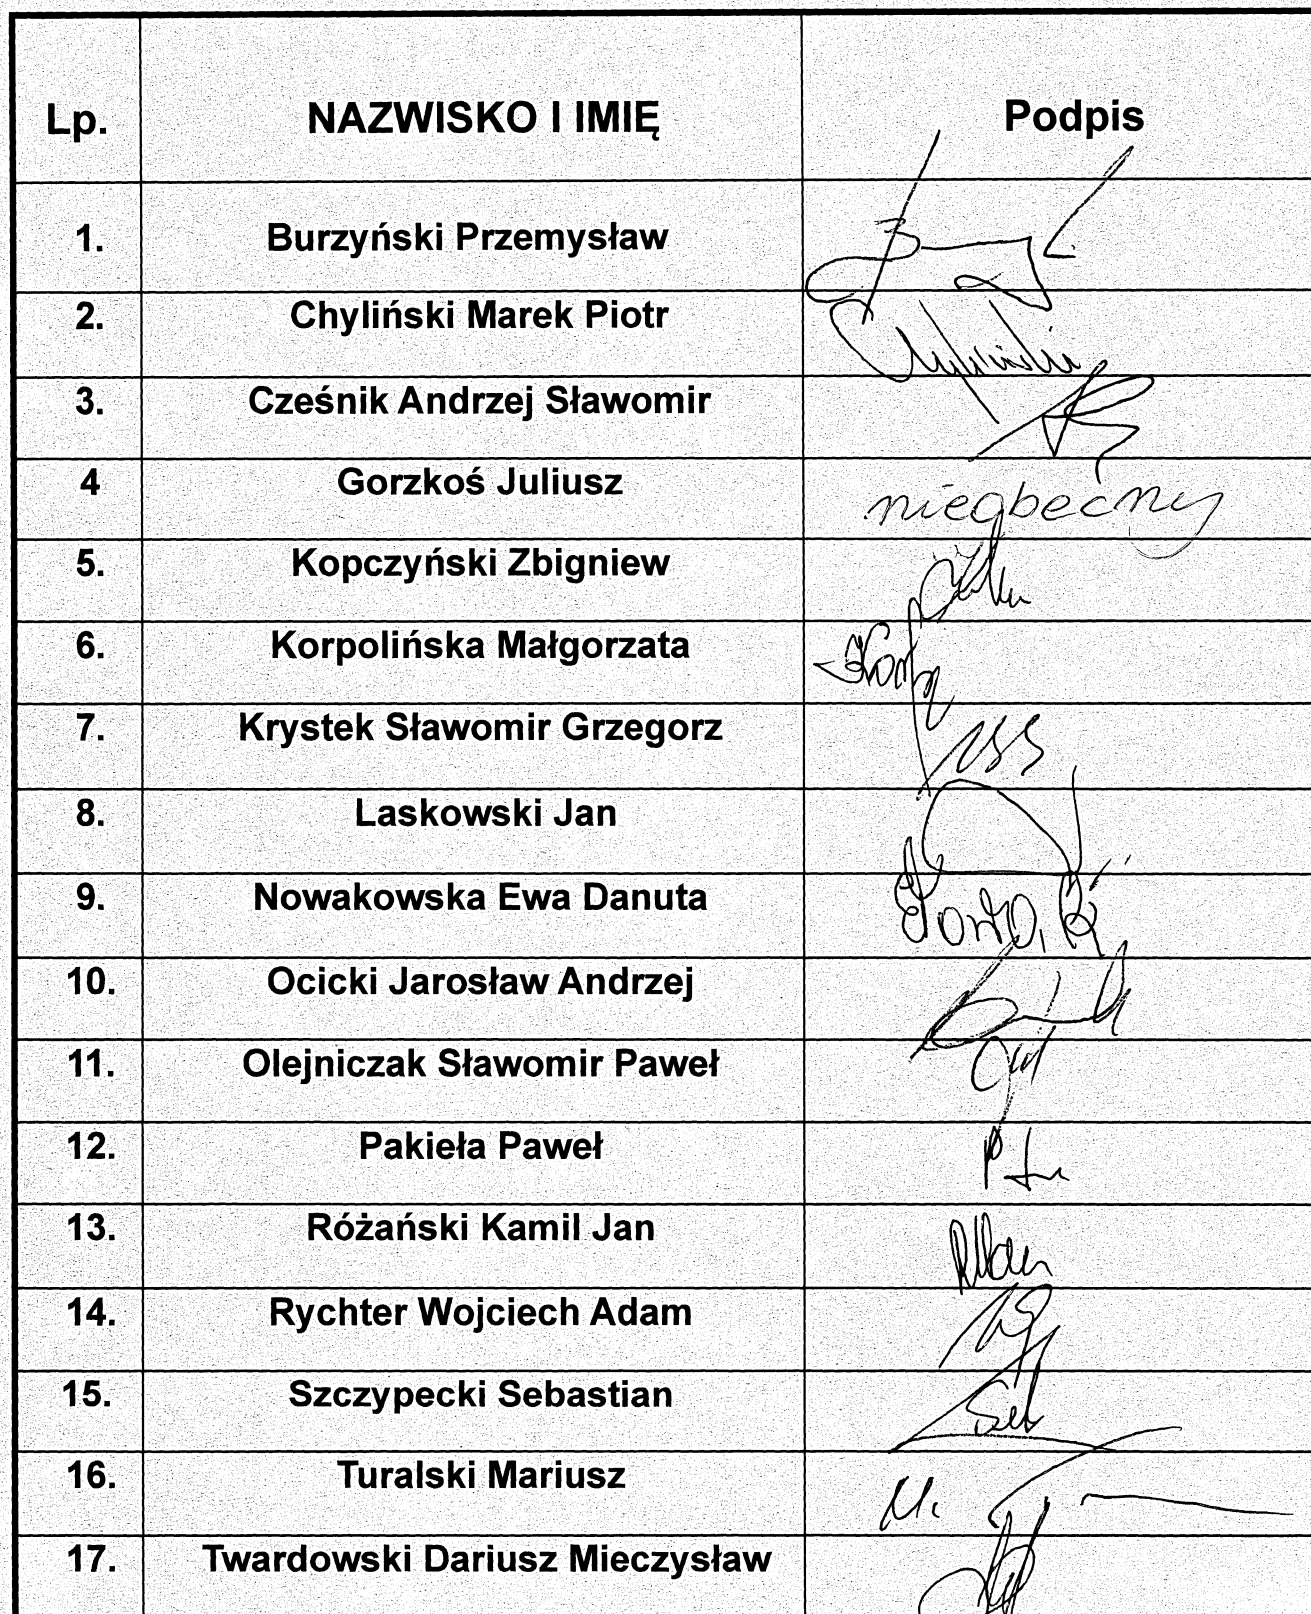 Lp. NAZWISKO I IMIĘ Podpis
1. Burzyński Przemysław
2. Chyliński Marek Piotr
3. Cześnik Andrzej Sławomir
4 Gorzkoś Juliusz nieobecny
5. Kopczyński Zbigniew
6. Korpolińska Małgorzata
7. Krystek Sławomir Grzegorz
8. Laskowski Jan
9. Nowakowska Ewa Danuta
10. Ocicki Jarosław Andrzej
11. Olejniczak Sławomir Paweł
12. Pakieła Paweł
13. Różański Kamil Jan
14. Rychter Wojciech Adam
15. Szczypecki Sebastian
16. Turalski Mariusz
17. Twardowski Dariusz Mieczysław